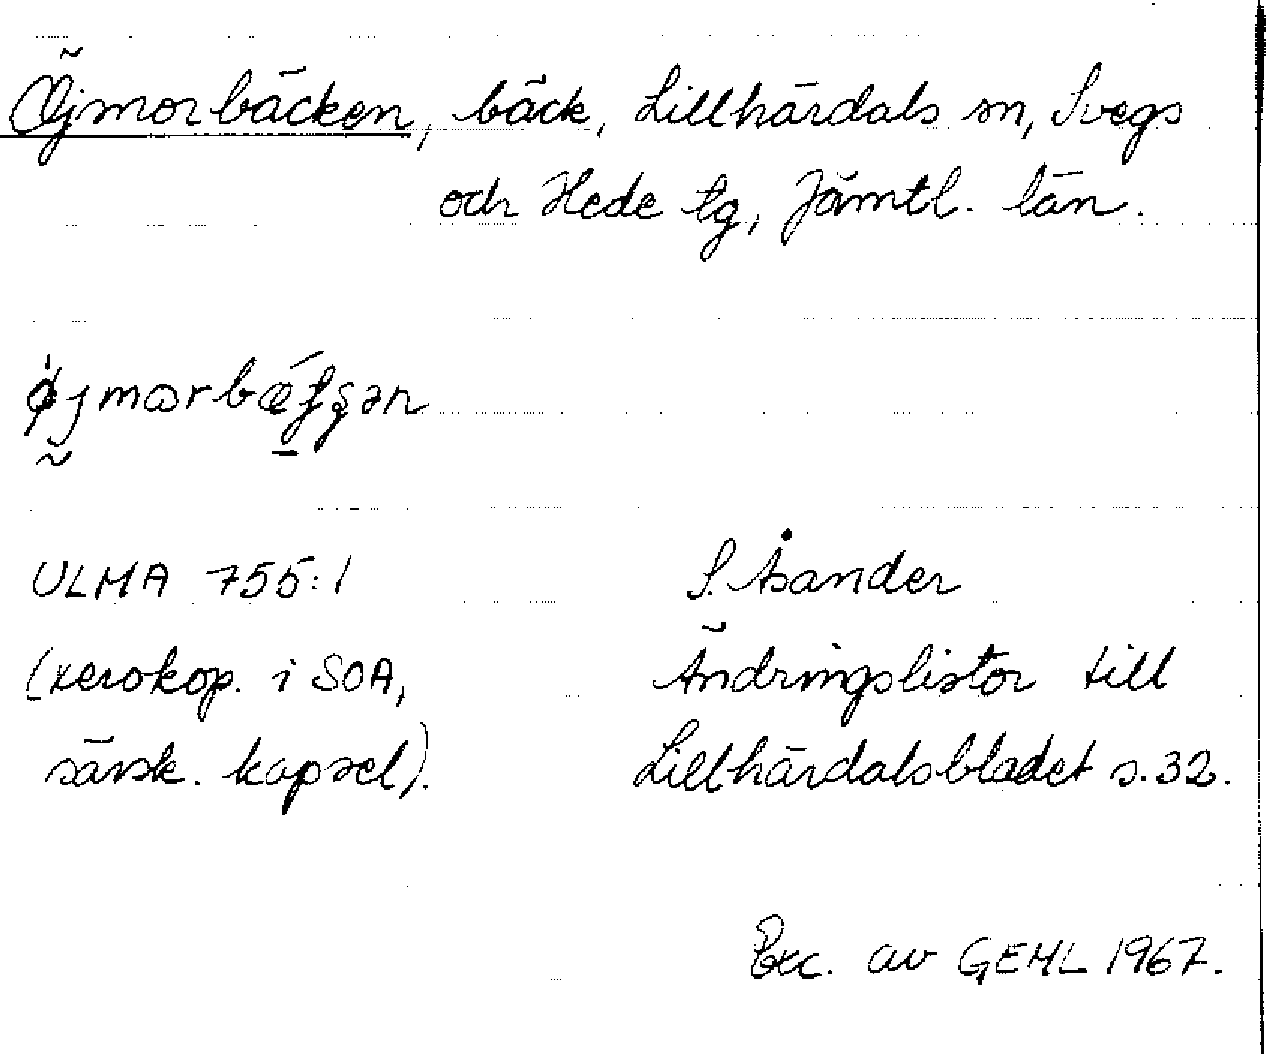 Öjmorbäcken, bäck, Lillhärdals sn, Svegs
och Hede tg, Jämtl. län.
ULMA 755:1
S. Åsander
(xerokop. i SOA,
Ändringslistor till
särsk. kapsel).
Lillhärdalsbladet s. 32.
Exc. av GEHL 1967.